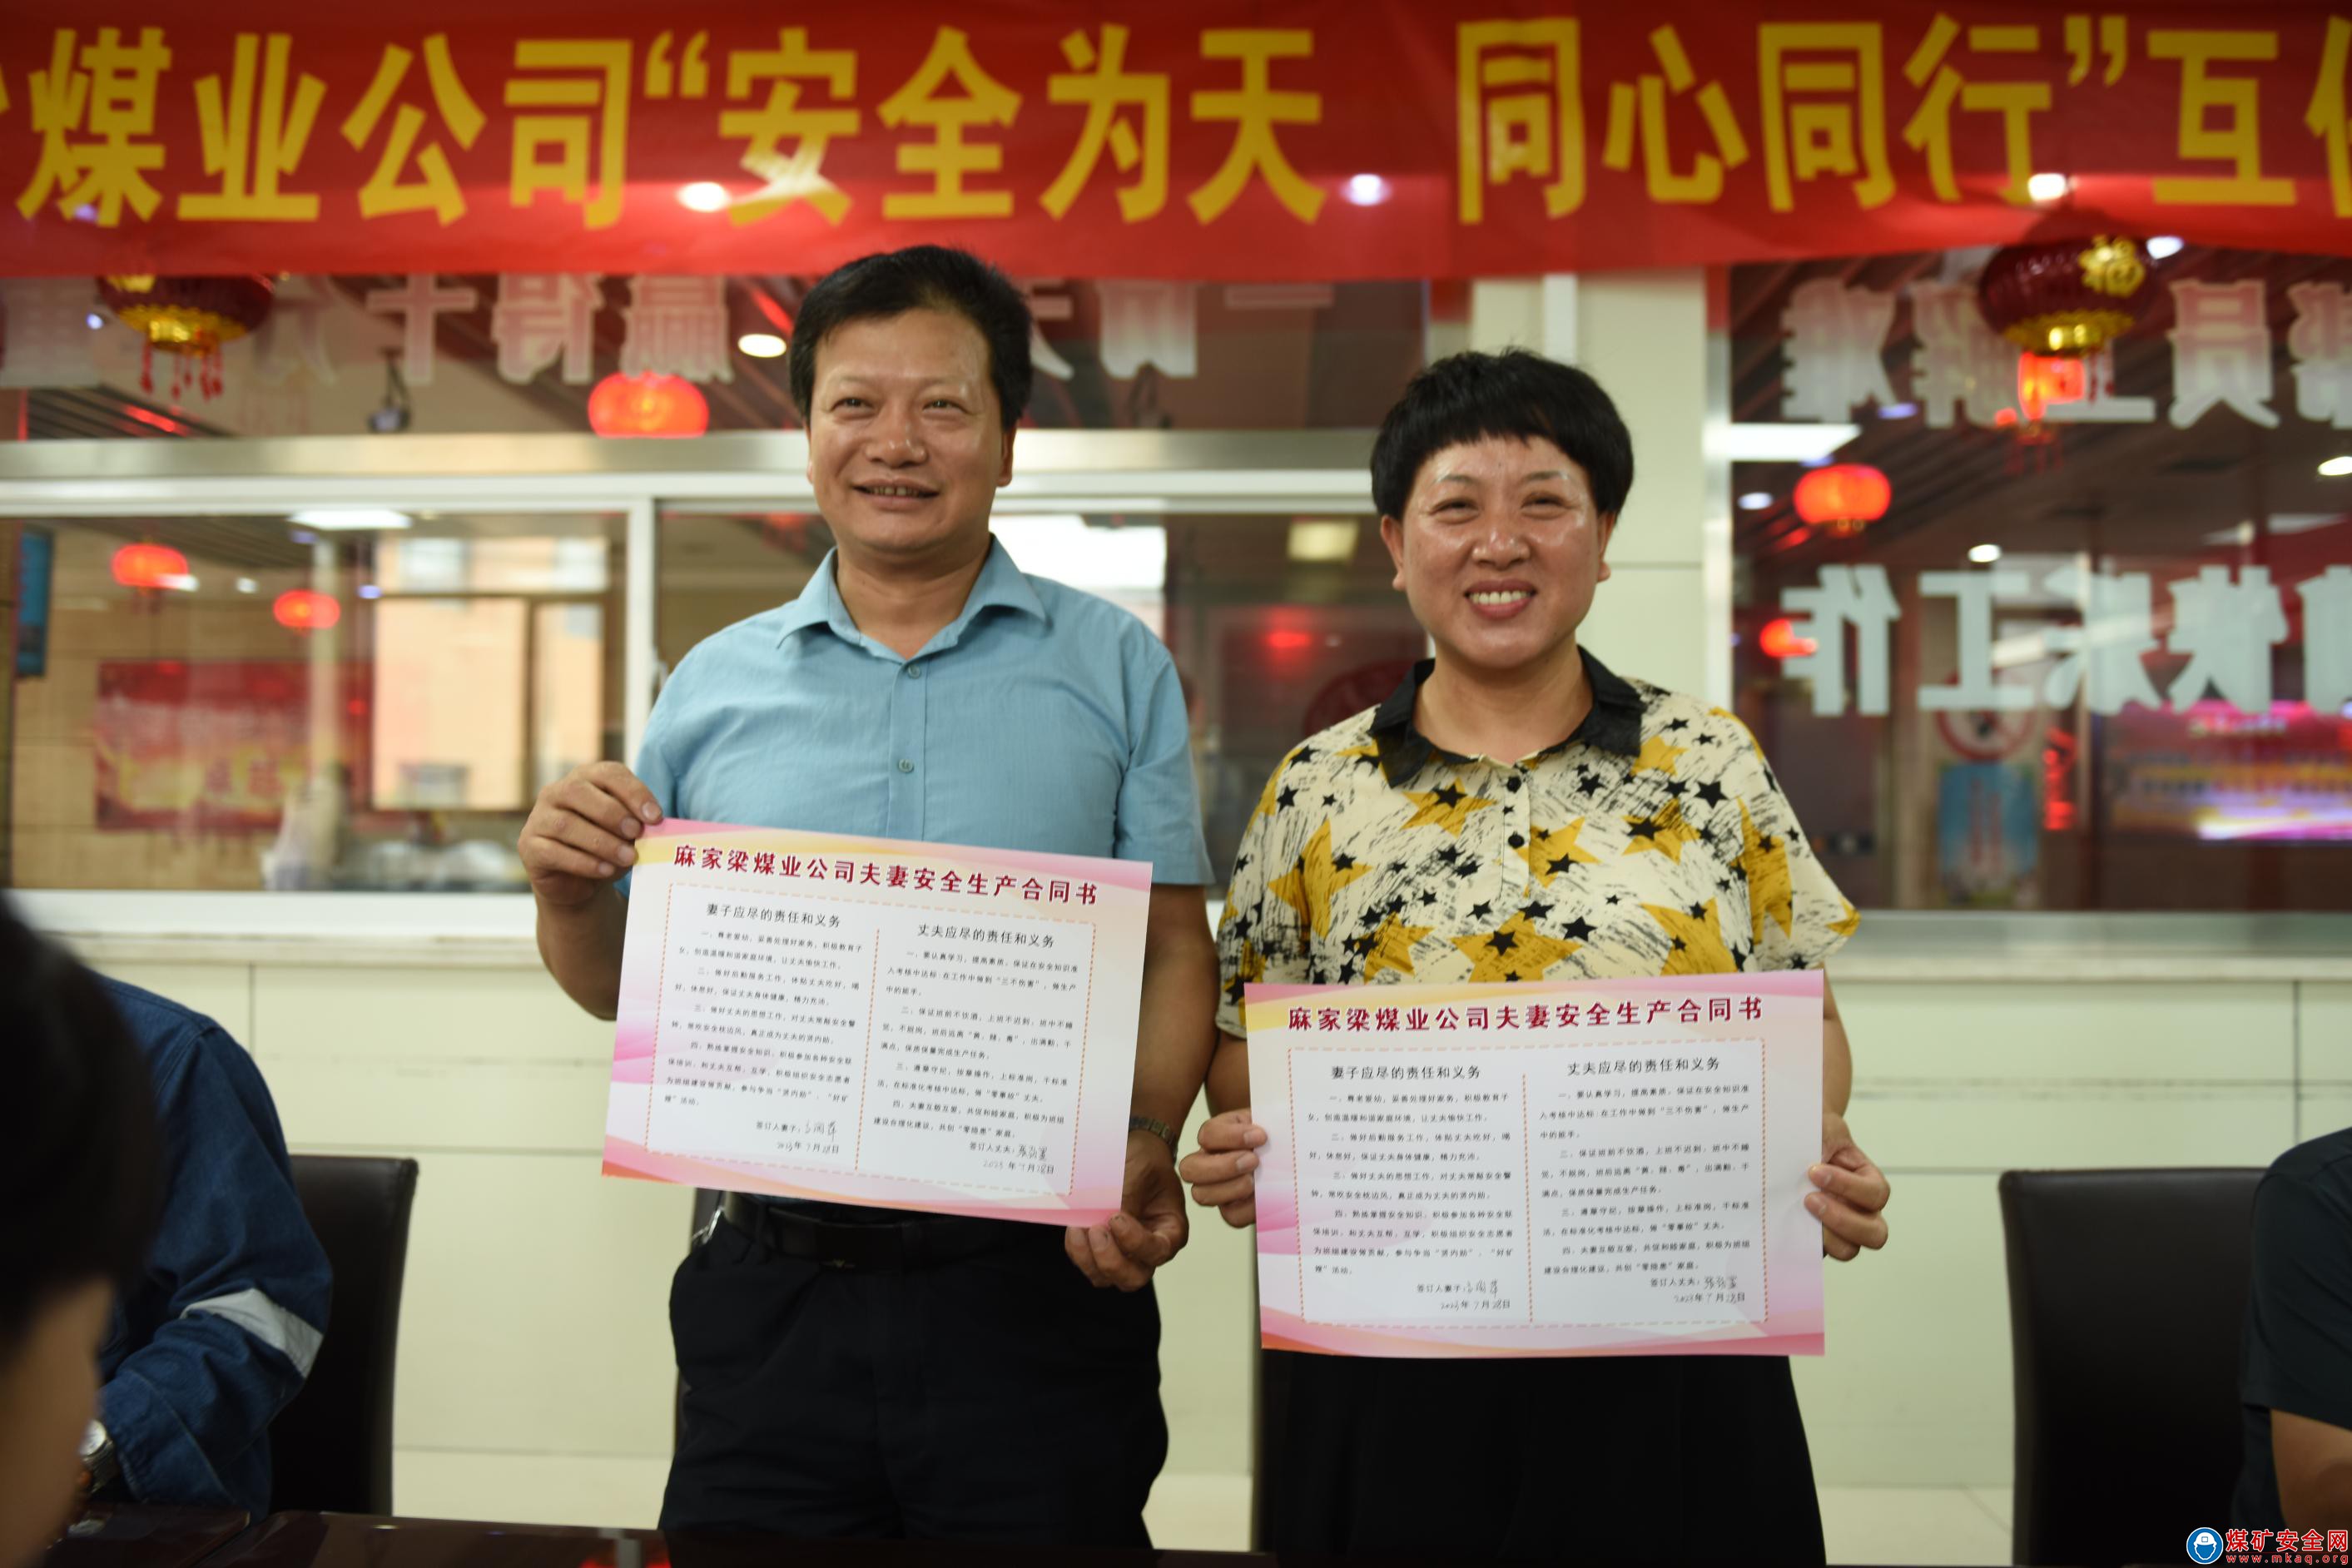 煤业公司“安全为天 同心同行”互
赢得
员工
快乐工作
福
麻家梁煤业公司夫妻安全生产合同书
妻子应尽的责任和义务
一、尊老爱幼，妥善处理好家务，积极教育子
女，创造温暖和谐家庭环境，让丈夫愉快工作。
二、做好后勤服务工作，体贴丈夫吃好，喝
好，休息好，保证丈夫身体健康，精力充沛。
三、做好丈夫的思想工作，对丈夫常敲安全警
钟，常吹安全枕边风，真正成为丈夫的贤内助。
四、熟练掌握安全知识，积极参加各种安全联
保培训，和丈夫互帮，互学，积极组织安全志愿者
为班组建设做贡献，参与争当“贤内助”、“好矿
嫂”活动。
签订人妻子：
2023年7月28日
丈夫应尽的责任和义务
一、要认真学习，提高素质，保证在安全知识准
入考核中达标；在工作中做到“三不伤害”，做生产
中的能手。
二、保证班前不饮酒，上班不迟到，班中不睡
觉，不脱岗，班后远离“黄、赌、毒”，出满勤，干
满点，保质保量完成生产任务。
三、遵章守纪，按章操作，上标准岗，干标准
活，在标准化考核中达标，做“零事故”丈夫。
四、夫妻互敬互爱，共促和睦家庭，积极为班组
建设合理化建议，共创“零隐患”家庭。
签订人丈夫：
2023年7月28日
麻家梁煤业公司夫妻安全生产合同书
妻子应尽的责任和义务
一、尊老爱幼，妥善处理好家务，积极教育子
女，创造温暖和谐家庭环境，让丈夫愉快工作。
二、做好后勤服务工作，体贴丈夫吃好，喝
好，休息好，保证丈夫身体健康，精力充沛。
三、做好丈夫的思想工作，对丈夫常敲安全警
钟，常吹安全枕边风，真正成为丈夫的贤内助。
四、熟练掌握安全知识，积极参加各种安全联
保培训，和丈夫互帮，互学，积极组织安全志愿者
为班组建设做贡献，参与争当“贤内助”、“好矿
嫂”活动。
签订人妻子：
2023年7月28日
丈夫应尽的责任和义务
一、要认真学习，提高素质，保证在安全知识准
入考核中达标；在工作中做到“三不伤害”，做生产
中的能手。
二、保证班前不饮酒，上班不迟到，班中不睡
觉，不脱岗，班后远离“黄、赌、毒”，出满勤，干
满点，保质保量完成生产任务。
三、遵章守纪，按章操作，上标准岗，干标准
活，在标准化考核中达标，做“零事故”丈夫。
四、夫妻互敬互爱，共促和睦家庭，积极为班组
建设合理化建议，共创“零隐患”家庭。
签订人丈夫：
2023年7月28日
煤矿安全网
www.mkaq.org